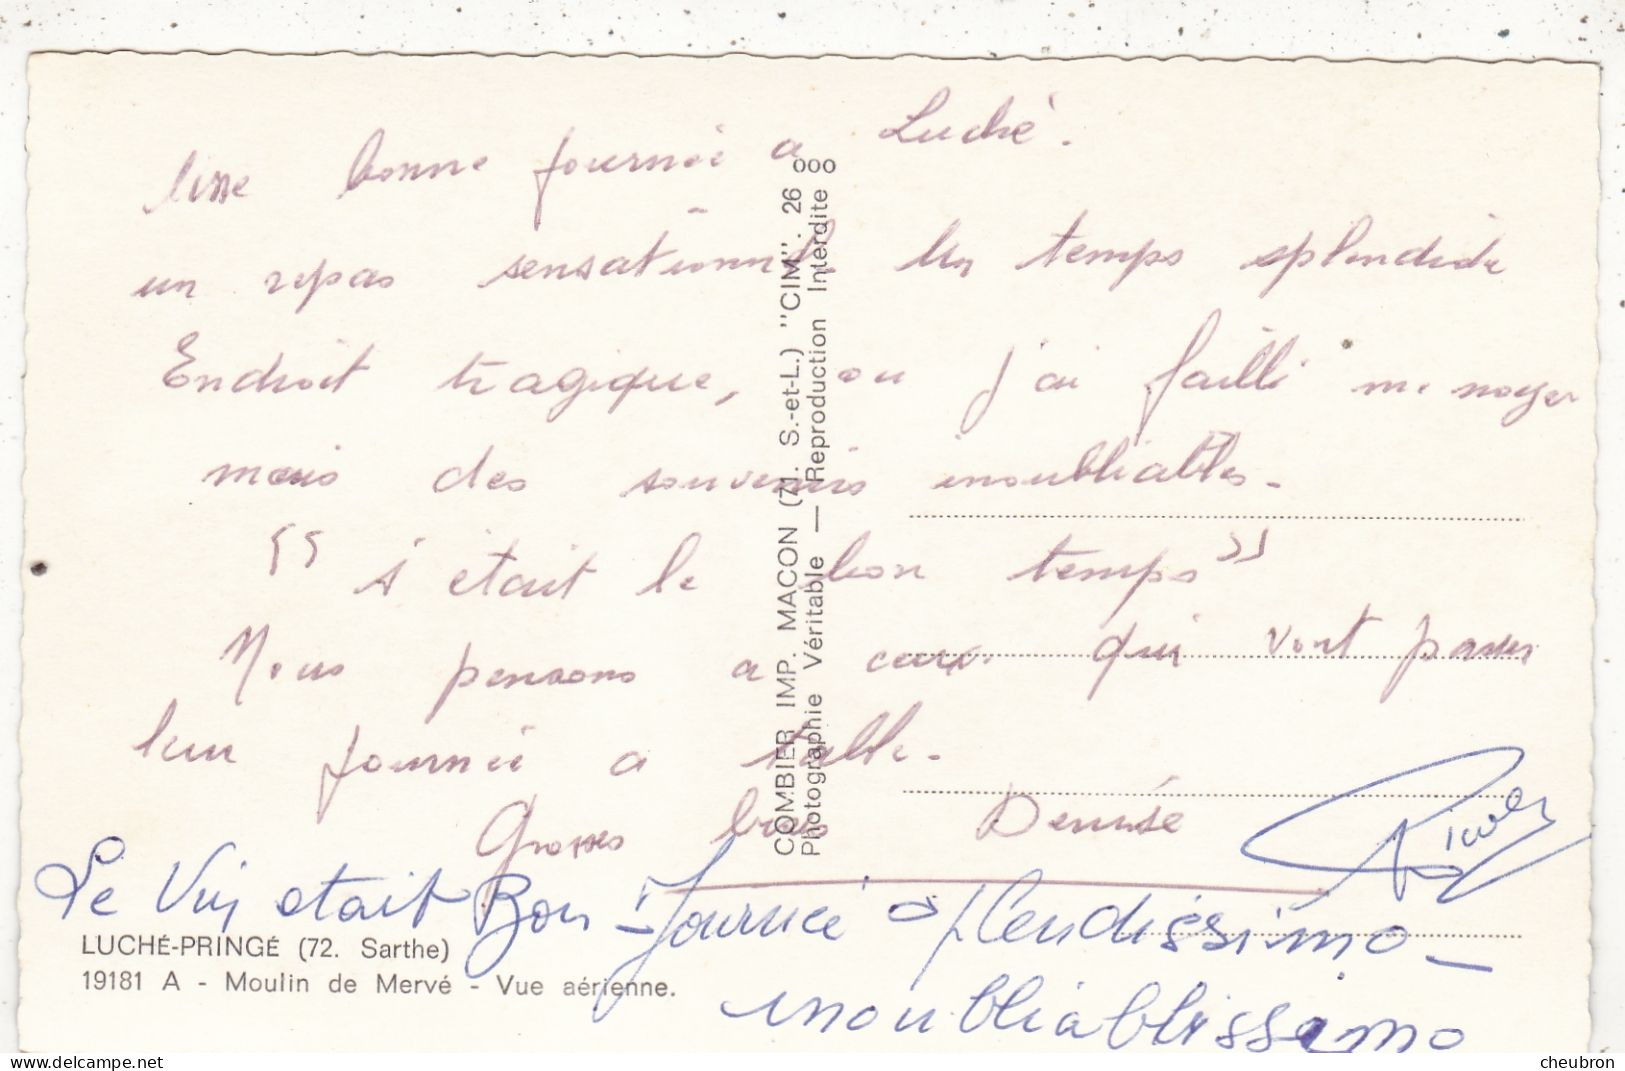 Une bonne journée a Luché.
un repas sensationnel Un temps splendide
Endroit tragique, ou j'ai failli me noyer
mais des souvenirs inoubliables.
"s'était le bon temps"
Nous pensons a ceux qui vont passer
leur journée a table.
Grosses bises Denise
Le Vin etait Bon - Journée splendissimo -
inoubliablissimo
LUCHÉ-PRINGÉ (72. Sarthe)
19181 A - Moulin de Mervé - Vue aérienne.
COMBIER IMP. MACON (71. S.-et-L.) "CIM". 26
Photographie Véritable — Reproduction Interdite
https://www.delcampe.net
cheubron